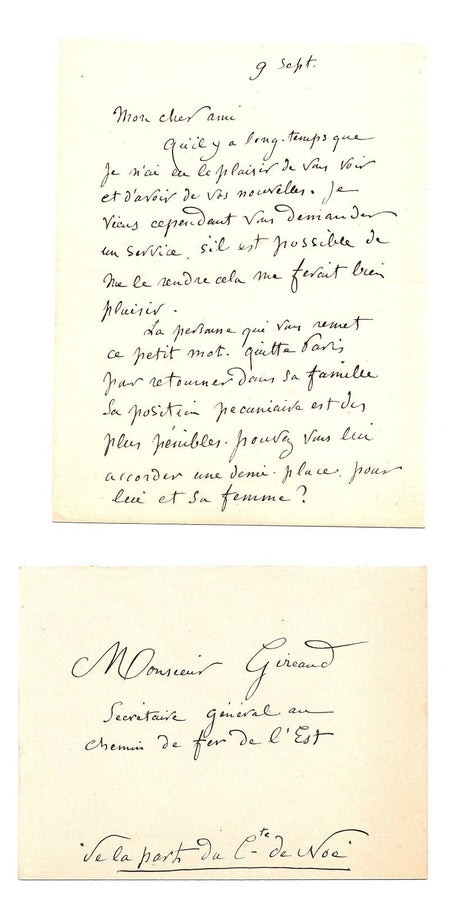 9 Sept.
Mon cher ami
Qu'il y a long-temps que
je n'ai eu le plaisir de vous voir
et d'avoir de vos nouvelles. Je
viens cependant vous demander
un service, s'il est possible de
me le rendre cela me ferait bien
plaisir.
La personne qui vous remet
ce petit mot. quitte Paris
pour retourner dans sa famille
Sa position pecuniaire est des
plus pénibles. pouvez vous lui
accorder une demi-place. pour
lui et sa femme ?
Monsieur Gireaud
Secrétaire général au
chemin de fer de l'Est
de la part du Cte de Noé